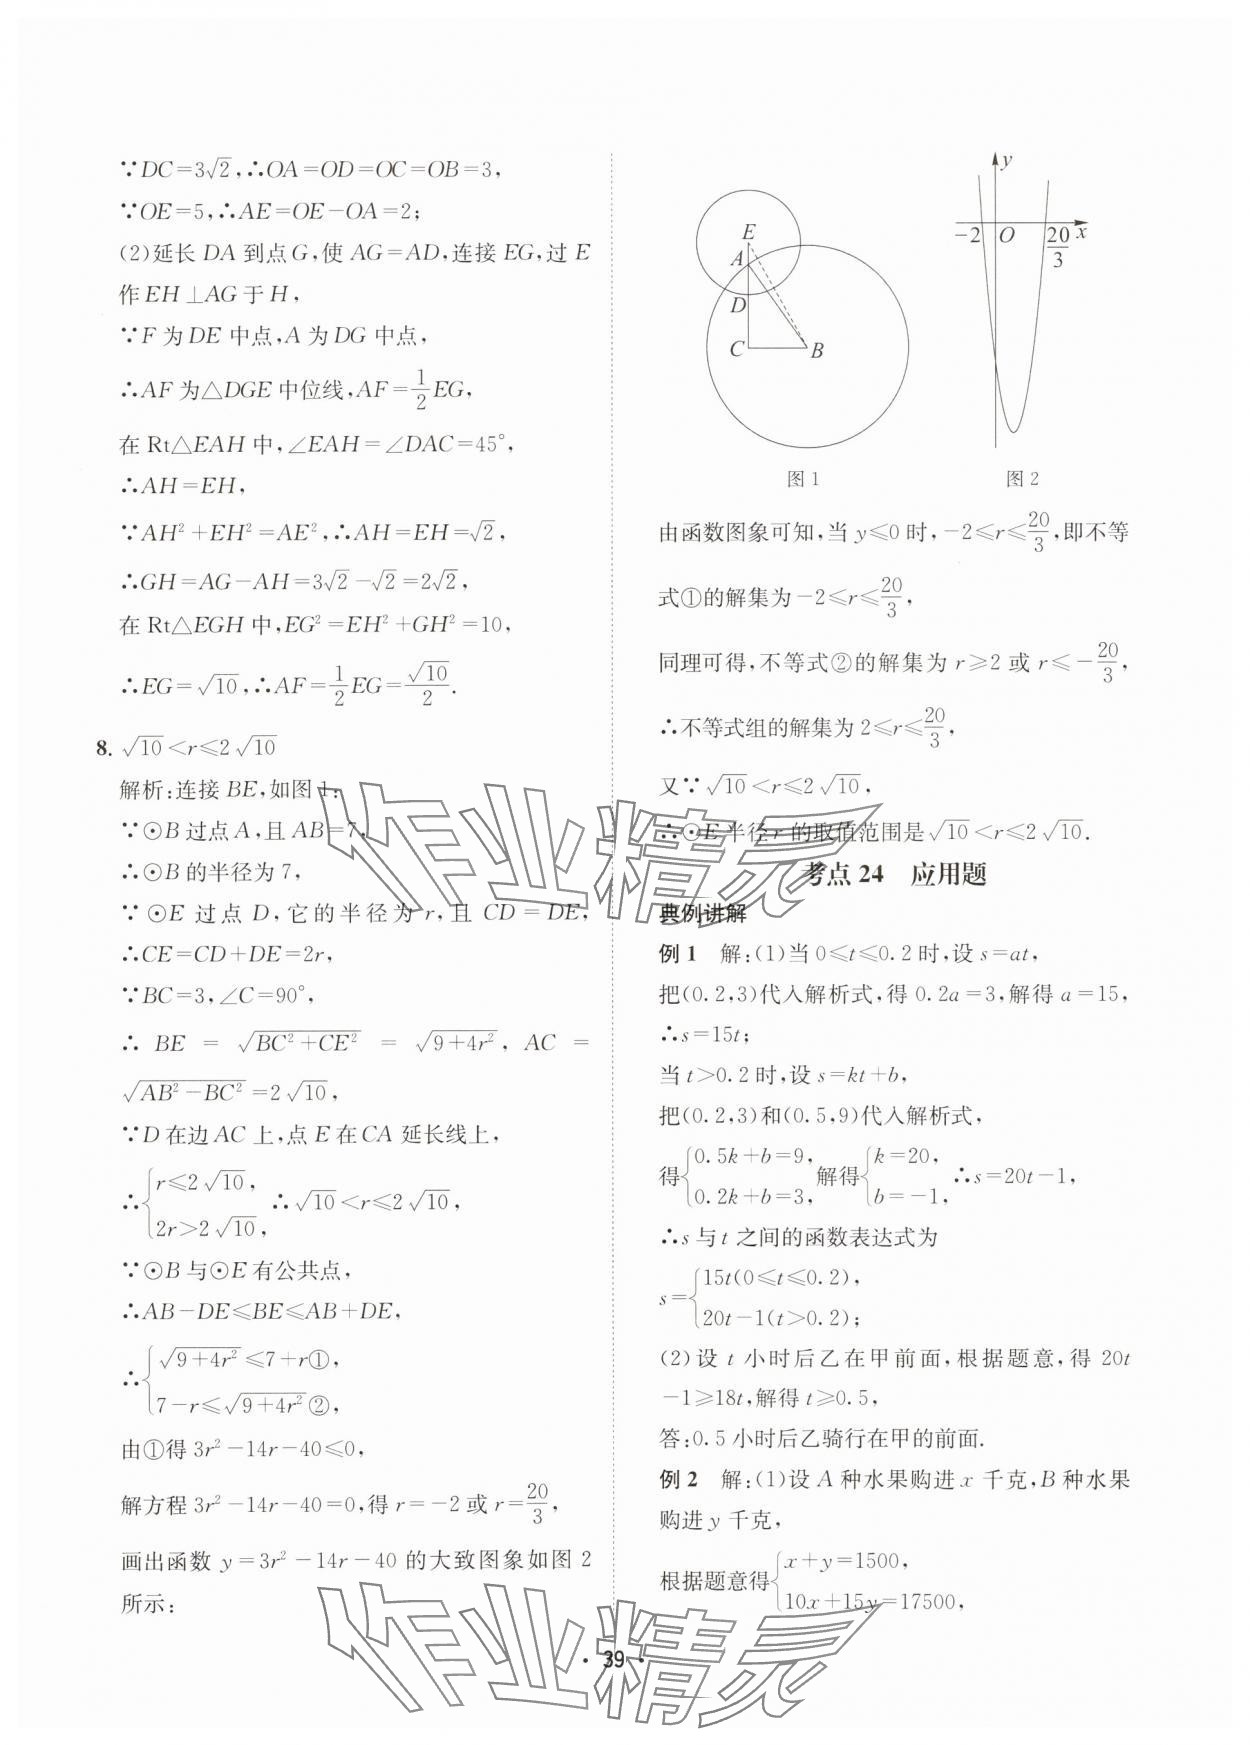 ∵DC=3√2,∴OA=OD=OC=OB=3,
∵OE=5,∴AE=OE-OA=2;
(2)延长 DA 到点G,使 AG=AD,连接 EG,过 E
作EH⊥AG于H,
∵F 为 DE 中点,A 为 DG 中点,
∴AF 为△DGE 中位线,AF=1/2EG,
在 Rt△EAH 中,∠EAH=∠DAC=45°,
∴AH=EH,
∵AH²+EH²=AE²,∴AH=EH=√2,
∴GH=AG-AH=3√2-√2=2√2,
在 Rt△EGH 中,EG²=EH²+GH²=10,
∴EG=√10,∴AF=1/2EG=√10/2.
8. √10<r≤2√10
解析:连接 BE,如图 1:
∵⊙B 过点 A,且 AB=7,
∴⊙B 的半径为 7,
∵⊙E 过点 D,它的半径为 r,且 CD=DE,
∴CE=CD+DE=2r,
∵BC=3,∠C=90°,
∴ BE = √(BC²+CE²) = √(9+4r²), AC =
√(AB²-BC²)=2√10,
∵D 在边 AC 上,点 E 在 CA 延长线上,
∴{r≤2√10, 2r>2√10, ∴√10<r≤2√10,
∵⊙B 与⊙E 有公共点,
∴AB-DE≤BE≤AB+DE,
∴{√(9+4r²)≤7+r①, 7-r≤√(9+4r²)②,
由①得 3r²-14r-40≤0,
解方程 3r²-14r-40=0,得 r=-2 或 r=20/3,
画出函数 y=3r²-14r-40 的大致图象如图 2
所示:
E
A
D
C
B
图 1
y
-2
O
20/3
x
图 2
由函数图象可知,当 y≤0 时,-2≤r≤20/3,即不等
式①的解集为-2≤r≤20/3,
同理可得,不等式②的解集为 r≥2 或 r≤-20/3,
∴不等式组的解集为 2≤r≤20/3,
又∵√10<r≤2√10,
∴⊙E 半径 r 的取值范围是√10<r≤2√10.
考点 24 应用题
典例讲解
例 1 解:(1)当 0≤t≤0.2 时,设 s=at,
把(0.2,3)代入解析式,得 0.2a=3,解得 a=15,
∴s=15t;
当 t>0.2 时,设 s=kt+b,
把(0.2,3)和(0.5,9)代入解析式,
得{0.5k+b=9, 0.2k+b=3, 解得{k=20, b=-1, ∴s=20t-1,
∴s 与 t 之间的函数表达式为
s={15t(0≤t≤0.2), 20t-1(t>0.2);
(2)设 t 小时后乙在甲前面,根据题意,得 20t
-1≥18t,解得 t≥0.5,
答:0.5 小时后乙骑行在甲的前面.
例 2 解:(1)设 A 种水果购进 x 千克,B 种水果
购进 y 千克,
根据题意得{x+y=1500, 10x+15y=17500,
· 39 ·
作业精灵
作业精灵